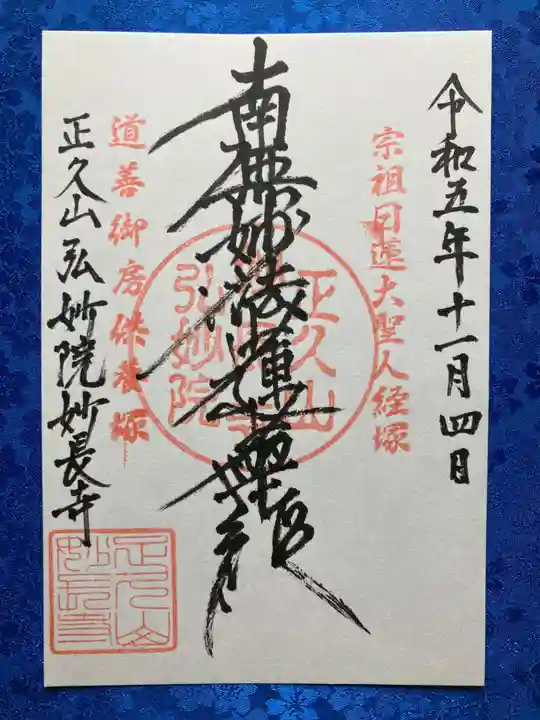 令和五年十一月四日
宗祖日蓮大聖人経塚
南無妙法蓮華経
正久山
妙長寺
弘妙院
道善御房供養塚
正久山弘妙院妙長寺
正久山
妙長寺